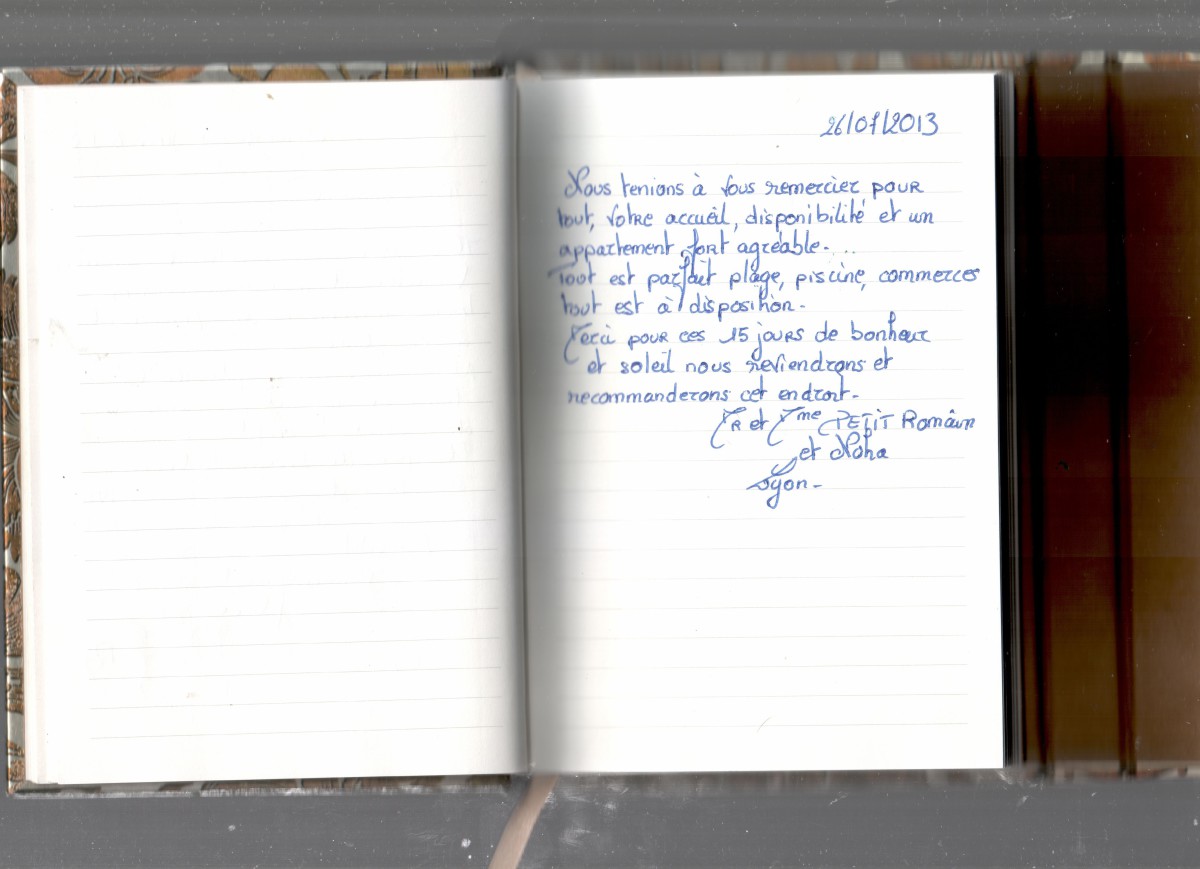 26/07/2013
Nous tenions à vous remercier pour
tout, votre accueil, disponibilité et un
appartement fort agréable....
Tout est parfait plage, piscine, commerces
tout est à disposition.
Merci pour ces 15 jours de bonheur
et soleil nous reviendrons et
recommanderons cet endroit.
Mr et Mme PETIT Romain
et Noha
Lyon.